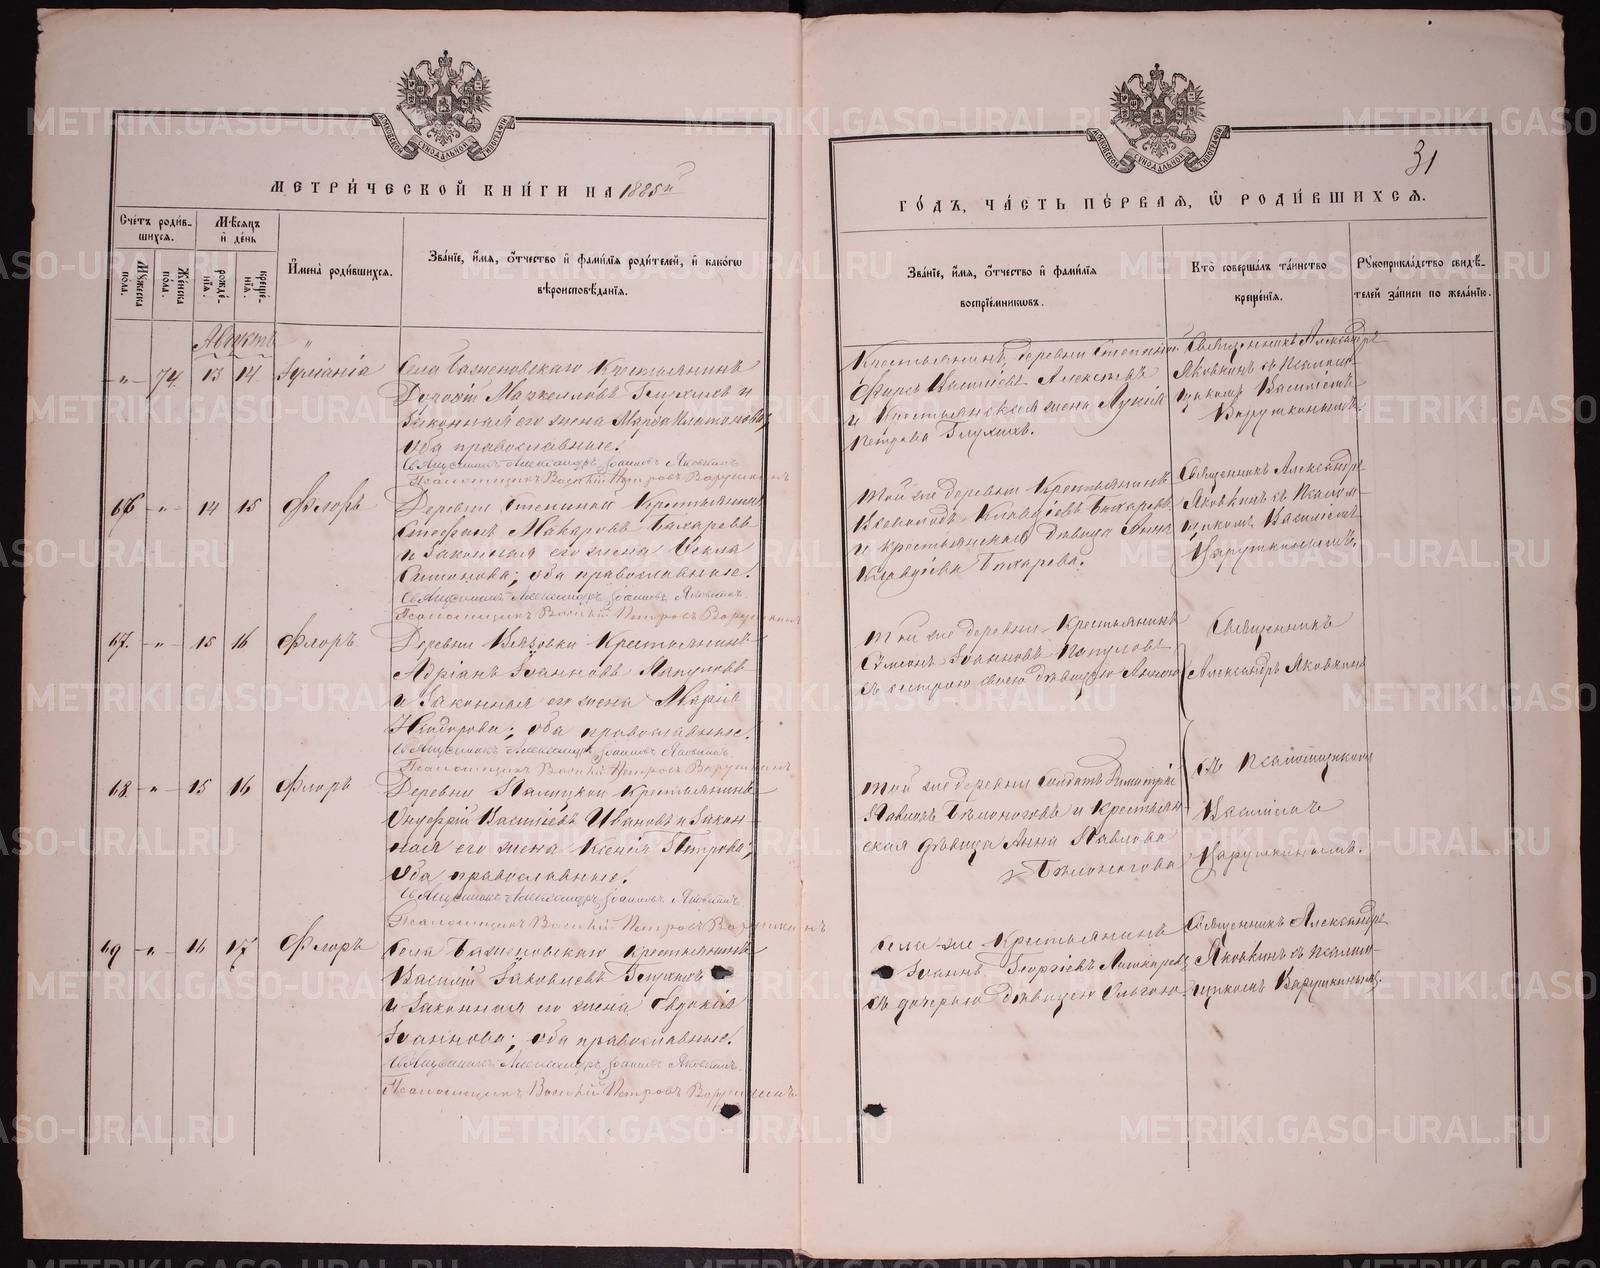 МОСКОВСКОЙ СѴНОДАЛЬНОЙ ТИПОГРАФІИ
МЕТРИ́ЧЕСКОЙ КНИ́ГИ НА 1885й
Сче́тъ роди́в-
шихся.
Мѣ́сяцъ
и҆ де́нь
Мꙋ́жеска по́ла.
Же́нска по́ла.
рожде́-
нїя.
креще́-
нїя.
И҆мена̀ роди́вшихся.
Зва́нїе, и҆́мя, ѻ҆́тчество и҆ фами́лїя роди́телей, и҆ како́гѡ
вѣроисповѣ́данїя.
Августъ
-"- 74. 13 14
Села Баженовскаго Крестьянинъ
Маркелловъ Глухихъ и
законная его жена Марѳа
оба православные.
Священникъ Александръ Іоанновъ Яковкинъ
Псаломщикъ Василій Петровъ Варушкинъ
66 -"- 14 15 Флоръ
Деревни Степиной Крестьянинъ
Стефанъ Макаровъ Бахаревъ
и законная его жена Ѳекла
оба православные.
Священникъ Александръ Іоанновъ Яковкинъ
Псаломщикъ Василій Петровъ Варушкинъ
67. -"- 15 16 Флоръ.
Деревни Вязовки Крестьянинъ
Адріанъ Іоанновъ Папуловъ
и законная его жена Марія
Ѳеодорова; оба православные.
Священникъ Александръ Іоанновъ Яковкинъ
Псаломщикъ Василій Петровъ Варушкинъ
68 -"- 15 16 Флоръ
Деревни Палицкой Крестьянинъ
Онуфрій Василіевъ Ивановъ и закон-
ная его жена Ксенія Петрова;
оба православные.
Священникъ Александръ Іоанновъ Яковкинъ
Псаломщикъ Василій Петровъ Варушкинъ
69 -"- 16 17 Флоръ
Села Баженовскаго крестьянинъ
Василій Іаковлевъ Глухихъ
и законная его жена Евдокія
Іоаннова; оба православные.
Священникъ Александръ Іоанновъ Яковкинъ
Псаломщикъ Василій Петровъ Варушкинъ
МОСКОВСКОЙ СѴНОДАЛЬНОЙ ТИПОГРАФІИ
31
ГО́ДЪ, ЧА́СТЬ ПЕ́РВАЯ, Ѽ РОДИ́ВШИХСЯ.
Зва́нїе, и҆́мя, ѻ҆́тчество и҆ фами́лїя
воспрїе́мникѡвъ.
Кто̀ соверша́лъ та́инство
креще́нїя.
Рꙋкоприкла́дство свидѣ́-
телей за́писи по жела́нїю.
Крестьянинъ деревни Степиной
Василіевъ Алексѣевъ
и Крестьянская жена Лукія
Петрова Глухихъ.
Священникъ Александръ
Яковкинъ съ Псалом-
щикомъ Василіемъ
Варушкинымъ.
Той же деревни Крестьянинъ
Клавдіевъ Бахаревъ
и крестьянская дѣвица Анна
Клавдіева Бахарева.
Священникъ Александръ
Яковкинъ съ Псалом-
щикомъ Василіемъ
Варушкинымъ.
Той же деревни Крестьянинъ
Сѵмеонъ Іоанновъ Папуловъ
съ сестрою своею дѣвицею Анною
Священникъ
Александръ Яковкинъ
Той же деревни Солдатъ Димитрій
Павловъ Бѣлоноговъ и Крестьян-
ская дѣвица Анна Павлова
Бѣлоногова
съ Псаломщикомъ
Василіемъ
Варушкинымъ.
Села же Крестьянинъ
Іоаннъ Георгіевъ
съ дочерью дѣвицею Ольгою
Священникъ Александръ
Яковкинъ съ Псалом-
щикомъ Варушкинымъ.
METRIKI.GASO-URAL.RU